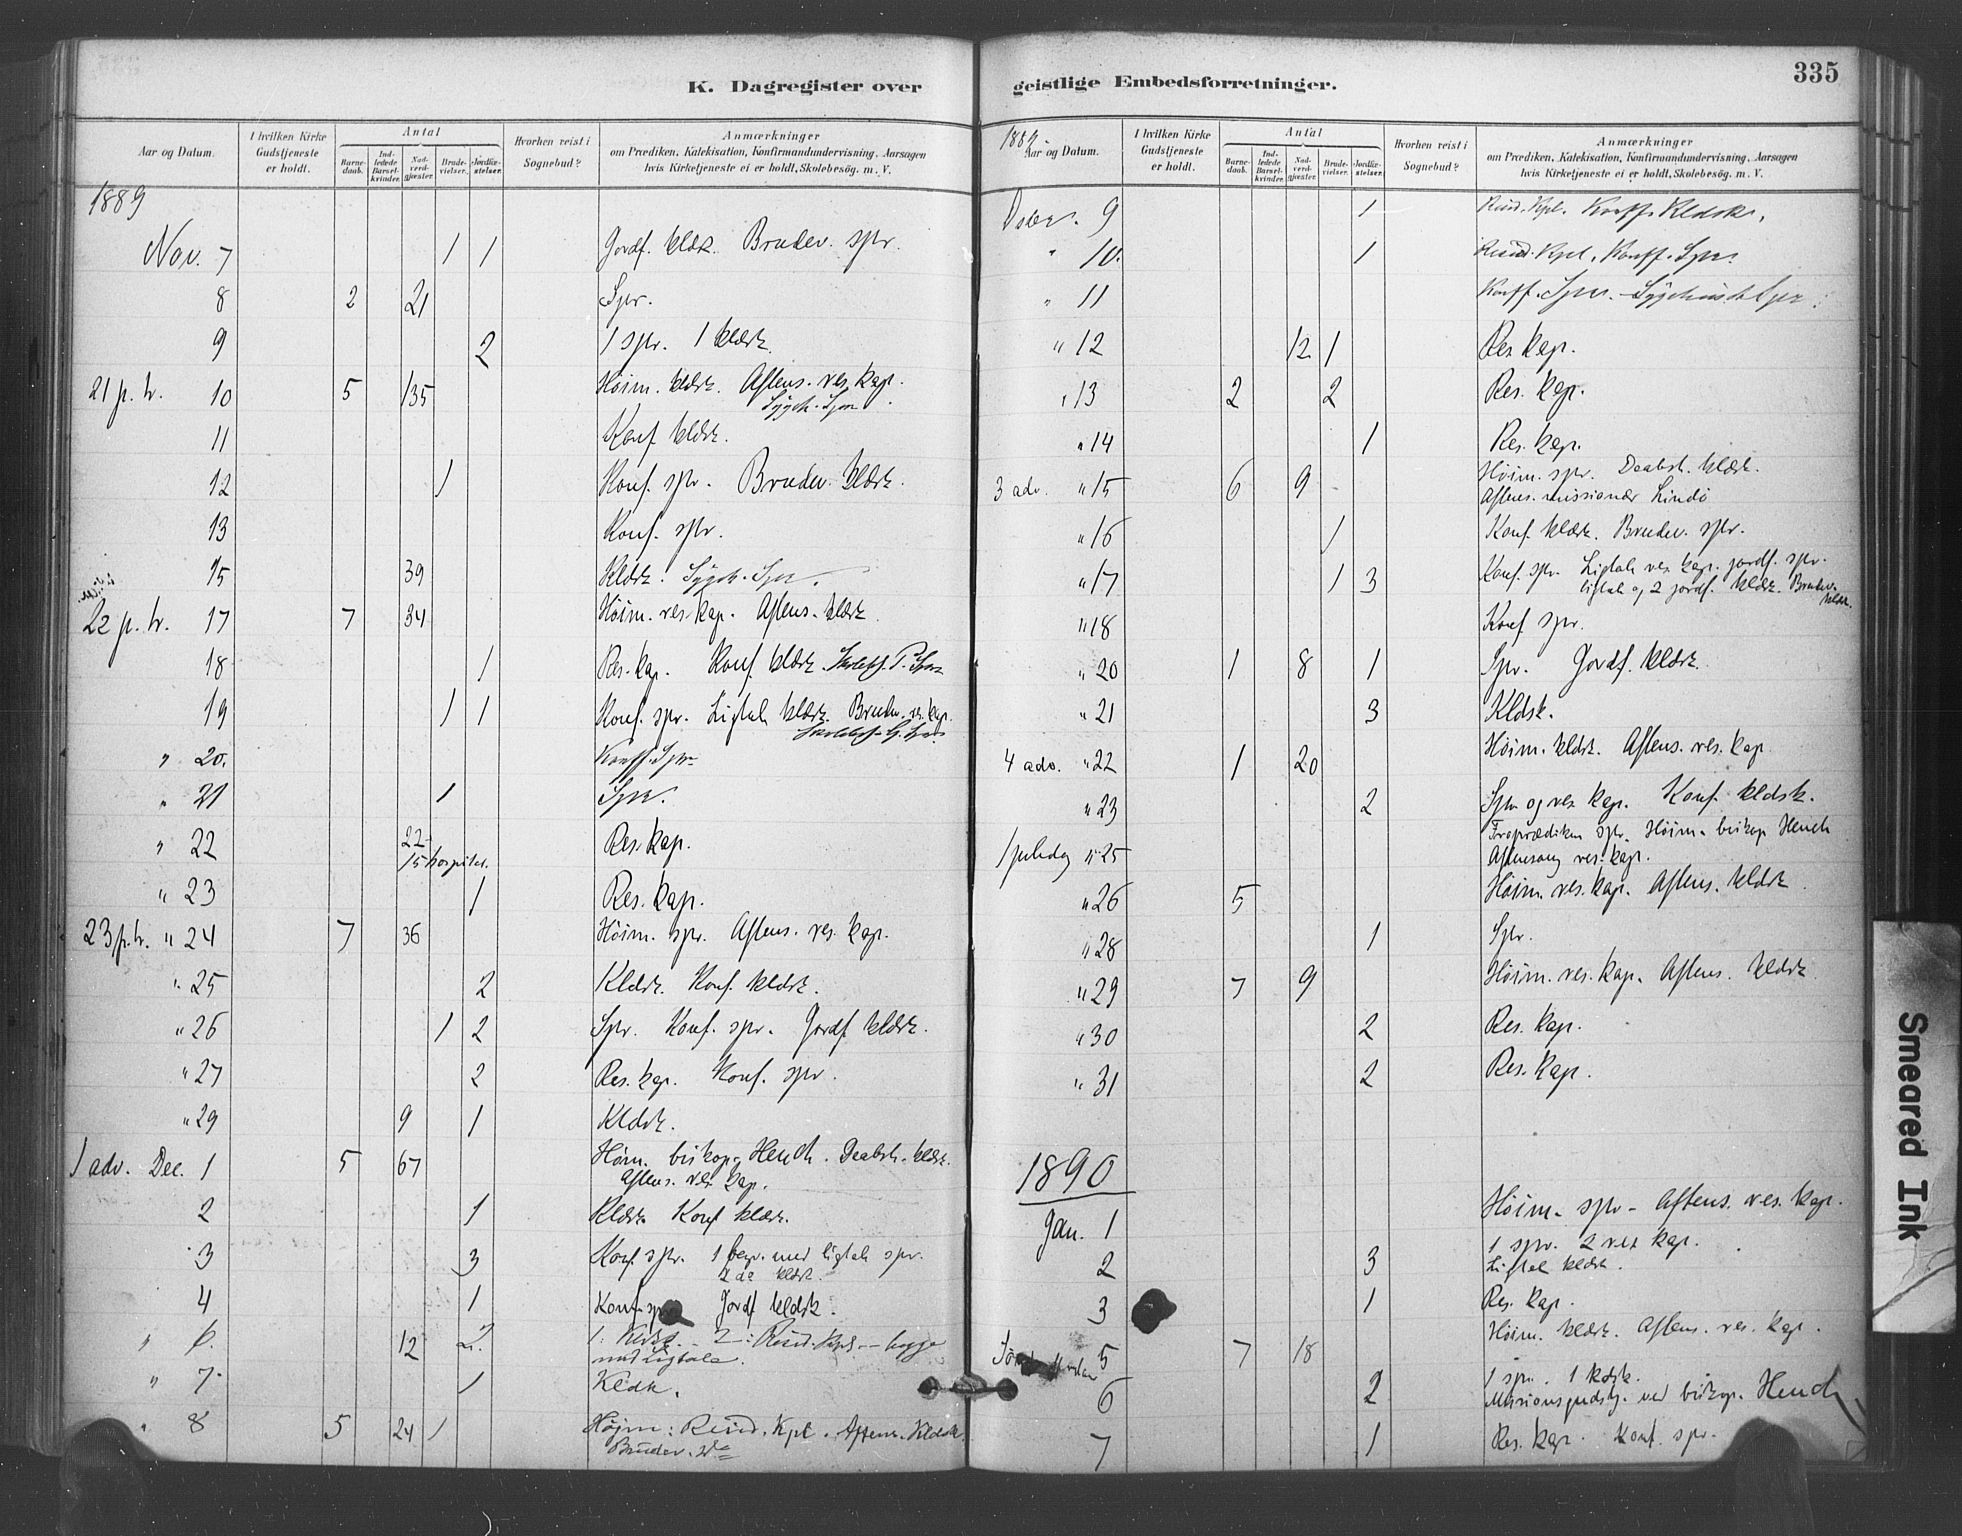 K. Dagregister over
Aar og Datum. I hvilken Kirke Gudstjeneste er holdt. Antal Barnedaab. Indledede Barselkvinder. Nadverdgjæster. Brudevielser. Jordfæstelser. Hvorhen reist i Sognebud? Anmærkninger om Prædiken, Katekisation, Konfirmandundervisning, Aarsagen hvis Kirketjeneste ei er holdt, Skolebesøg. m. V.
1889
Nov. 7 1 1 Jordf. klldk. Brudev. spr.
8 2 21 Spr.
9 2 1 spr. 1 klldk.
21 p. tr. 10 5 135 Höim. klldk. Aftens. res. kap.
Sygeh. Spr.
11 Konf. klldk.
12 1 Konf. spr. Brudev. klldk.
13 Konf. spr.
15 39 Kldk. Sygeh. Spr.
22 p. tr. 17 7 34 Höim. res. kap. Aftens. kldk.
18 1 Res. kap. Konf. kldk.
19 1 1 Konf. spr. Ligtale kldk. Brudev. res. kap.
" 20. Konf. Spr.
" 21 1 Spr.
" 22 22 Res. kap.
15 hospitu.
" 23 1 Res. kap.
23 p. tr. " 24 7 36 Höim. spr. Aftens. res. kap.
" 25 2 Kldk. Konf. kldk.
" 26 1 2 Spr. Konf. spr. Jordf. kldk.
" 27 2 Res. kap. Konf. spr.
" 29 9 1 Kldk.
1 adv. Dec. 1 5 67 Höim. biskop Heuch. Daabsh. kldk.
Aftens. res. kap.
2 1 Kldk. Konf. kldk.
3 3 Konf. spr. 1 begr. med ligtale spr.
2 do kldk.
4 1 Konf. spr. Jordf. kldk.
" 6. 12 2. 1. Kldk. 2: Resid. Kpl. — begge
med Ligtale.
" 7. 1 Kldk.
" 8 5 24 1 Höjm: Resid. Kpl. Aftens. Kldk.
Brudev. do
geistlige Embedsforretninger.
335
1889
Aar og Datum. I hvilken Kirke Gudstjeneste er holdt. Antal Barnedaab. Indledede Barselkvinder. Nadverdgjæster. Brudevielser. Jordfæstelser. Hvorhen reist i Sognebud? Anmærkninger om Prædiken, Katekisation, Konfirmandundervisning, Aarsagen hvis Kirketjeneste ei er holdt, Skolebesøg. m. V.
Dcbr. 9 1 Resid. Kpl. Konf. Kldk.
" 10. 1 Resid. Kpl. Konf. Spr.
" 11 Konf. Spr.
" 12 12 1 Res. kap.
" 13 2 2 Res. kap.
" 14 1 Res. kap.
3 adv. " 15 6 9 Höim. spr. Daabsh. kldk.
Aftens. missionær Lindö
" 16 1 Konf. kldk. Brudev. spr.
" 17 1 3 Konf. spr. Ligtale res. kap. jordf. spr.
ligtale og 2 jordf. kldk. Brudev. kldk.
" 18 Konf spr.
" 20 1 8 1 Spr. Jordf. kldk.
" 21 3 Kldk.
4 adv. " 22 1 20 Höim. kldk. Aftens. res. kap
" 23 2 Spr og res kap. Konf. kldk.
1 juledag " 25 Froprædiken spr. Höim. biskop Heuch
Aftensang res. kap.
" 26 5 Höim. res. kap. Aftens. kldk
" 28 1 Spr.
" 29 7 9 Höim. res. kap. Aftens. kldk
" 30 2 Res. kap.
" 31 2 Res. kap.
1890
Jan. 1 Höim. spr. Aftens. res. kap.
2 3 1 spr. 2 res kap.
Ligtale kldk.
3 1 Res. kap.
5 7 18 Höim. kldk. Aftens. res. kap.
6 2 1 spr. 1 kldk.
Missionsgudstj. ved biskop Heuch
7 1 Res. kap. Konf. spr.
Smeared Ink